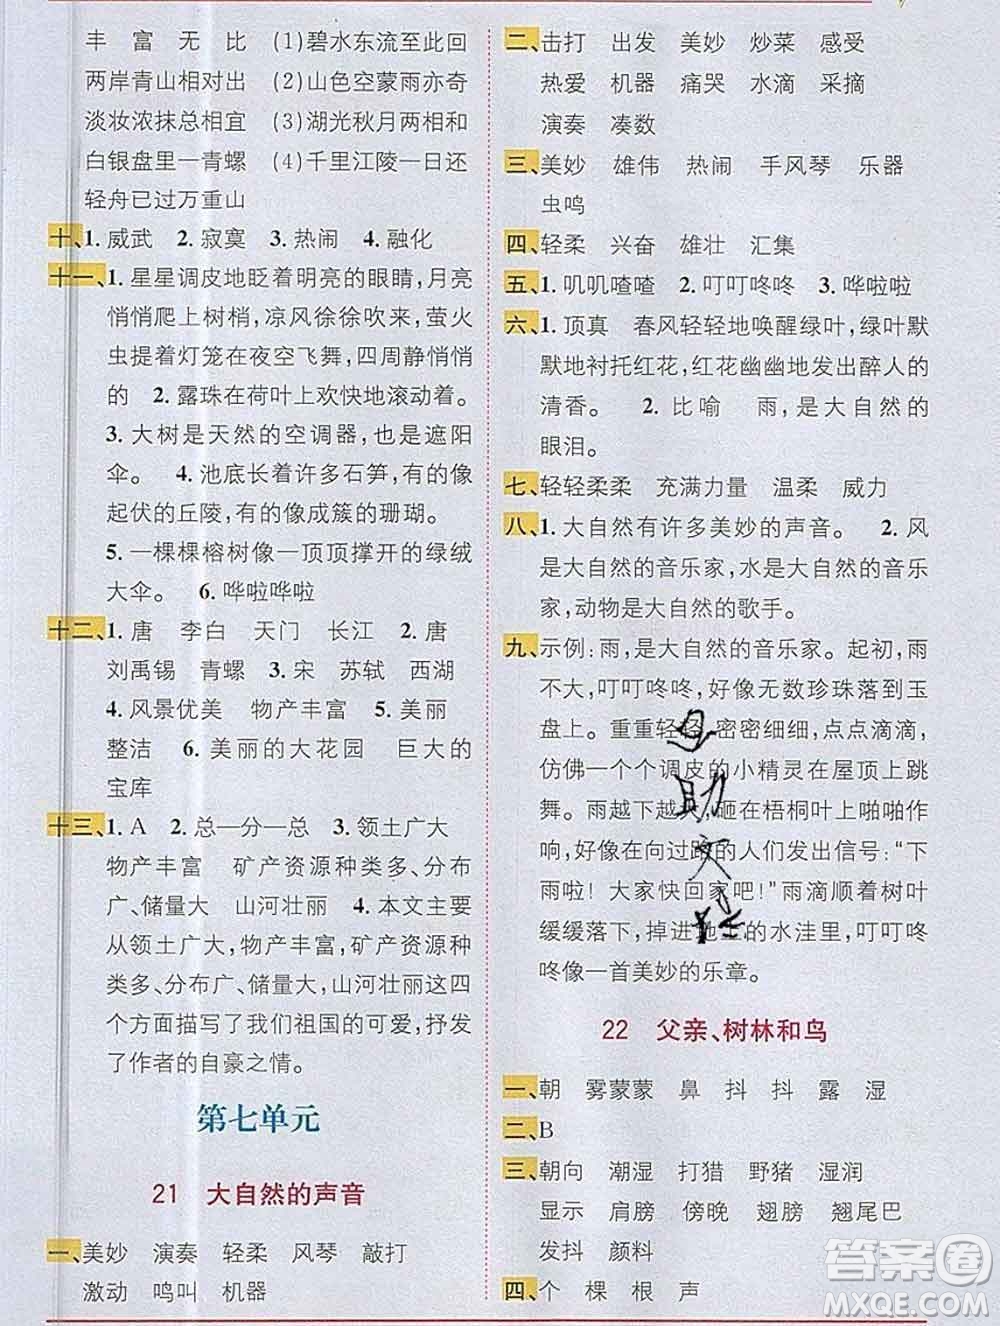 丰 富 无 比 (1)碧水东流至此回
两岸青山相对出 (2)山色空蒙雨亦奇
淡妆浓抹总相宜 (3)湖光秋月两相和
白银盘里一青螺 (4)千里江陵一日还
轻舟已过万重山
十、1. 威武 2. 寂寞 3. 热闹 4. 融化
十一、1. 星星调皮地眨着明亮的眼睛,月亮
悄悄爬上树梢,凉风徐徐吹来,萤火
虫提着灯笼在夜空飞舞,四周静悄悄
的 2. 露珠在荷叶上欢快地滚动着。
3. 大树是天然的空调器,也是遮阳
伞。 4. 池底长着许多石笋,有的像
起伏的丘陵,有的像成簇的珊瑚。
5. 一棵棵榕树像一顶顶撑开的绿绒
大伞。 6. 哗啦哗啦
十二、1. 唐 李白 天门 长江 2. 唐
刘禹锡 青螺 3. 宋 苏轼 西湖
4. 风景优美 物产丰富 5. 美丽
整洁 6. 美丽的大花园 巨大的
宝库
十三、1. A 2. 总—分—总 3. 领土广大
物产丰富 矿产资源种类多、分布
广、储量大 山河壮丽 4. 本文主要
从领土广大,物产丰富,矿产资源种
类多、分布广、储量大,山河壮丽这四
个方面描写了我们祖国的可爱,抒发
了作者的自豪之情。
第七单元
21 大自然的声音
一、美妙 演奏 轻柔 风琴 敲打
激动 鸣叫 机器
二、击打 出发 美妙 炒菜 感受
热爱 机器 痛哭 水滴 采摘
演奏 凑数
三、美妙 雄伟 热闹 手风琴 乐器
虫鸣
四、轻柔 兴奋 雄壮 汇集
五、1. 叽叽喳喳 2. 叮叮咚咚 3. 哗啦啦
六、1. 顶真 春风轻轻地唤醒绿叶,绿叶默
默地衬托红花,红花幽幽地发出醉人的
清香。 2. 比喻 雨,是大自然的
眼泪。
七、轻轻柔柔 充满力量 温柔 威力
八、1. 大自然有许多美妙的声音。 2. 风
是大自然的音乐家,水是大自然的音乐
家,动物是大自然的歌手。
九、示例:雨,是大自然的音乐家。起初,雨
不大,叮叮咚咚,好像无数珍珠落到玉
盘上。重重轻轻,密密细细,点点滴滴,
仿佛一个个调皮的小精灵在屋顶上跳
舞。雨越下越大,砸在梧桐叶上啪啪作
响,好像在向过路的人们发出信号:“下
雨啦! 大家快回家吧!”雨滴顺着树叶
缓缓落下,掉进地上的水洼里,叮叮咚
咚像一首美妙的乐章。
22 父亲、树林和鸟
一、朝 雾蒙蒙 鼻 抖 抖 露 湿
二、B
三、朝向 潮湿 打猎 野猪 湿润
显示 肩膀 傍晚 翅膀 翘尾巴
发抖 颜料
四、个 棵 根 声
答案圈
MXQE.COM